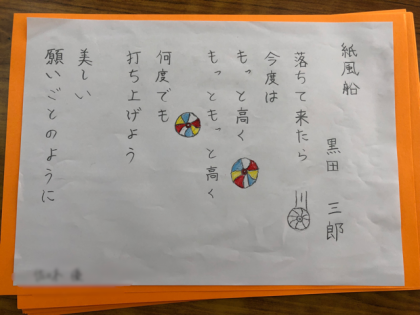 紙風船
黒田 三郎
落ちて来たら
今度は
もっと高く
もっともっと高く
何度でも
打ち上げよう
美しい
願いごとのように